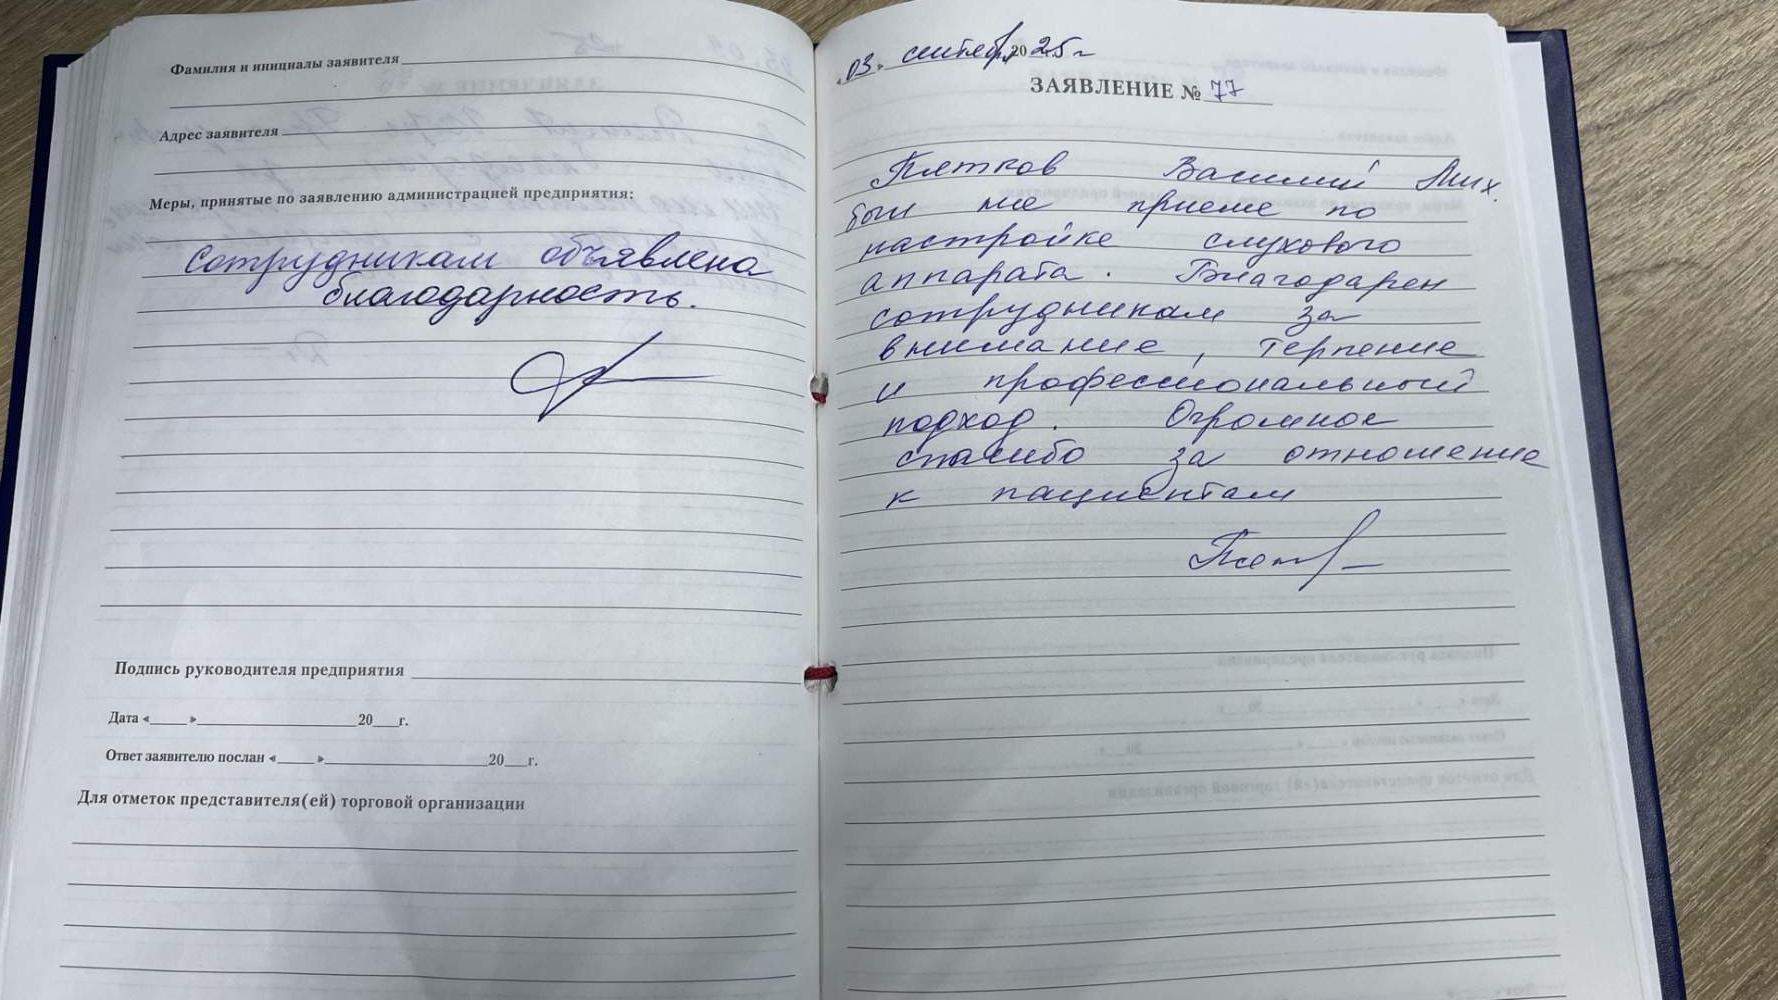 Фамилия и инициалы заявителя
Адрес заявителя
Меры, принятые по заявлению администрацией предприятия:
Сотрудникам объявлена
благодарность.
Подпись руководителя предприятия
Дата «____» ____________ 20__г.
Ответ заявителю послан «____» ____________ 20__г.
Для отметок представителя(ей) торговой организации
«03» сентябр 2025 г
ЗАЯВЛЕНИЕ № 77
Пятков Василий Мих.
был на приеме по
настройке слухового
аппарата. Благодарен
сотрудникам за
внимание, терпение
и профессиональный
подход. Огромное
спасибо за отношение
к пациентам